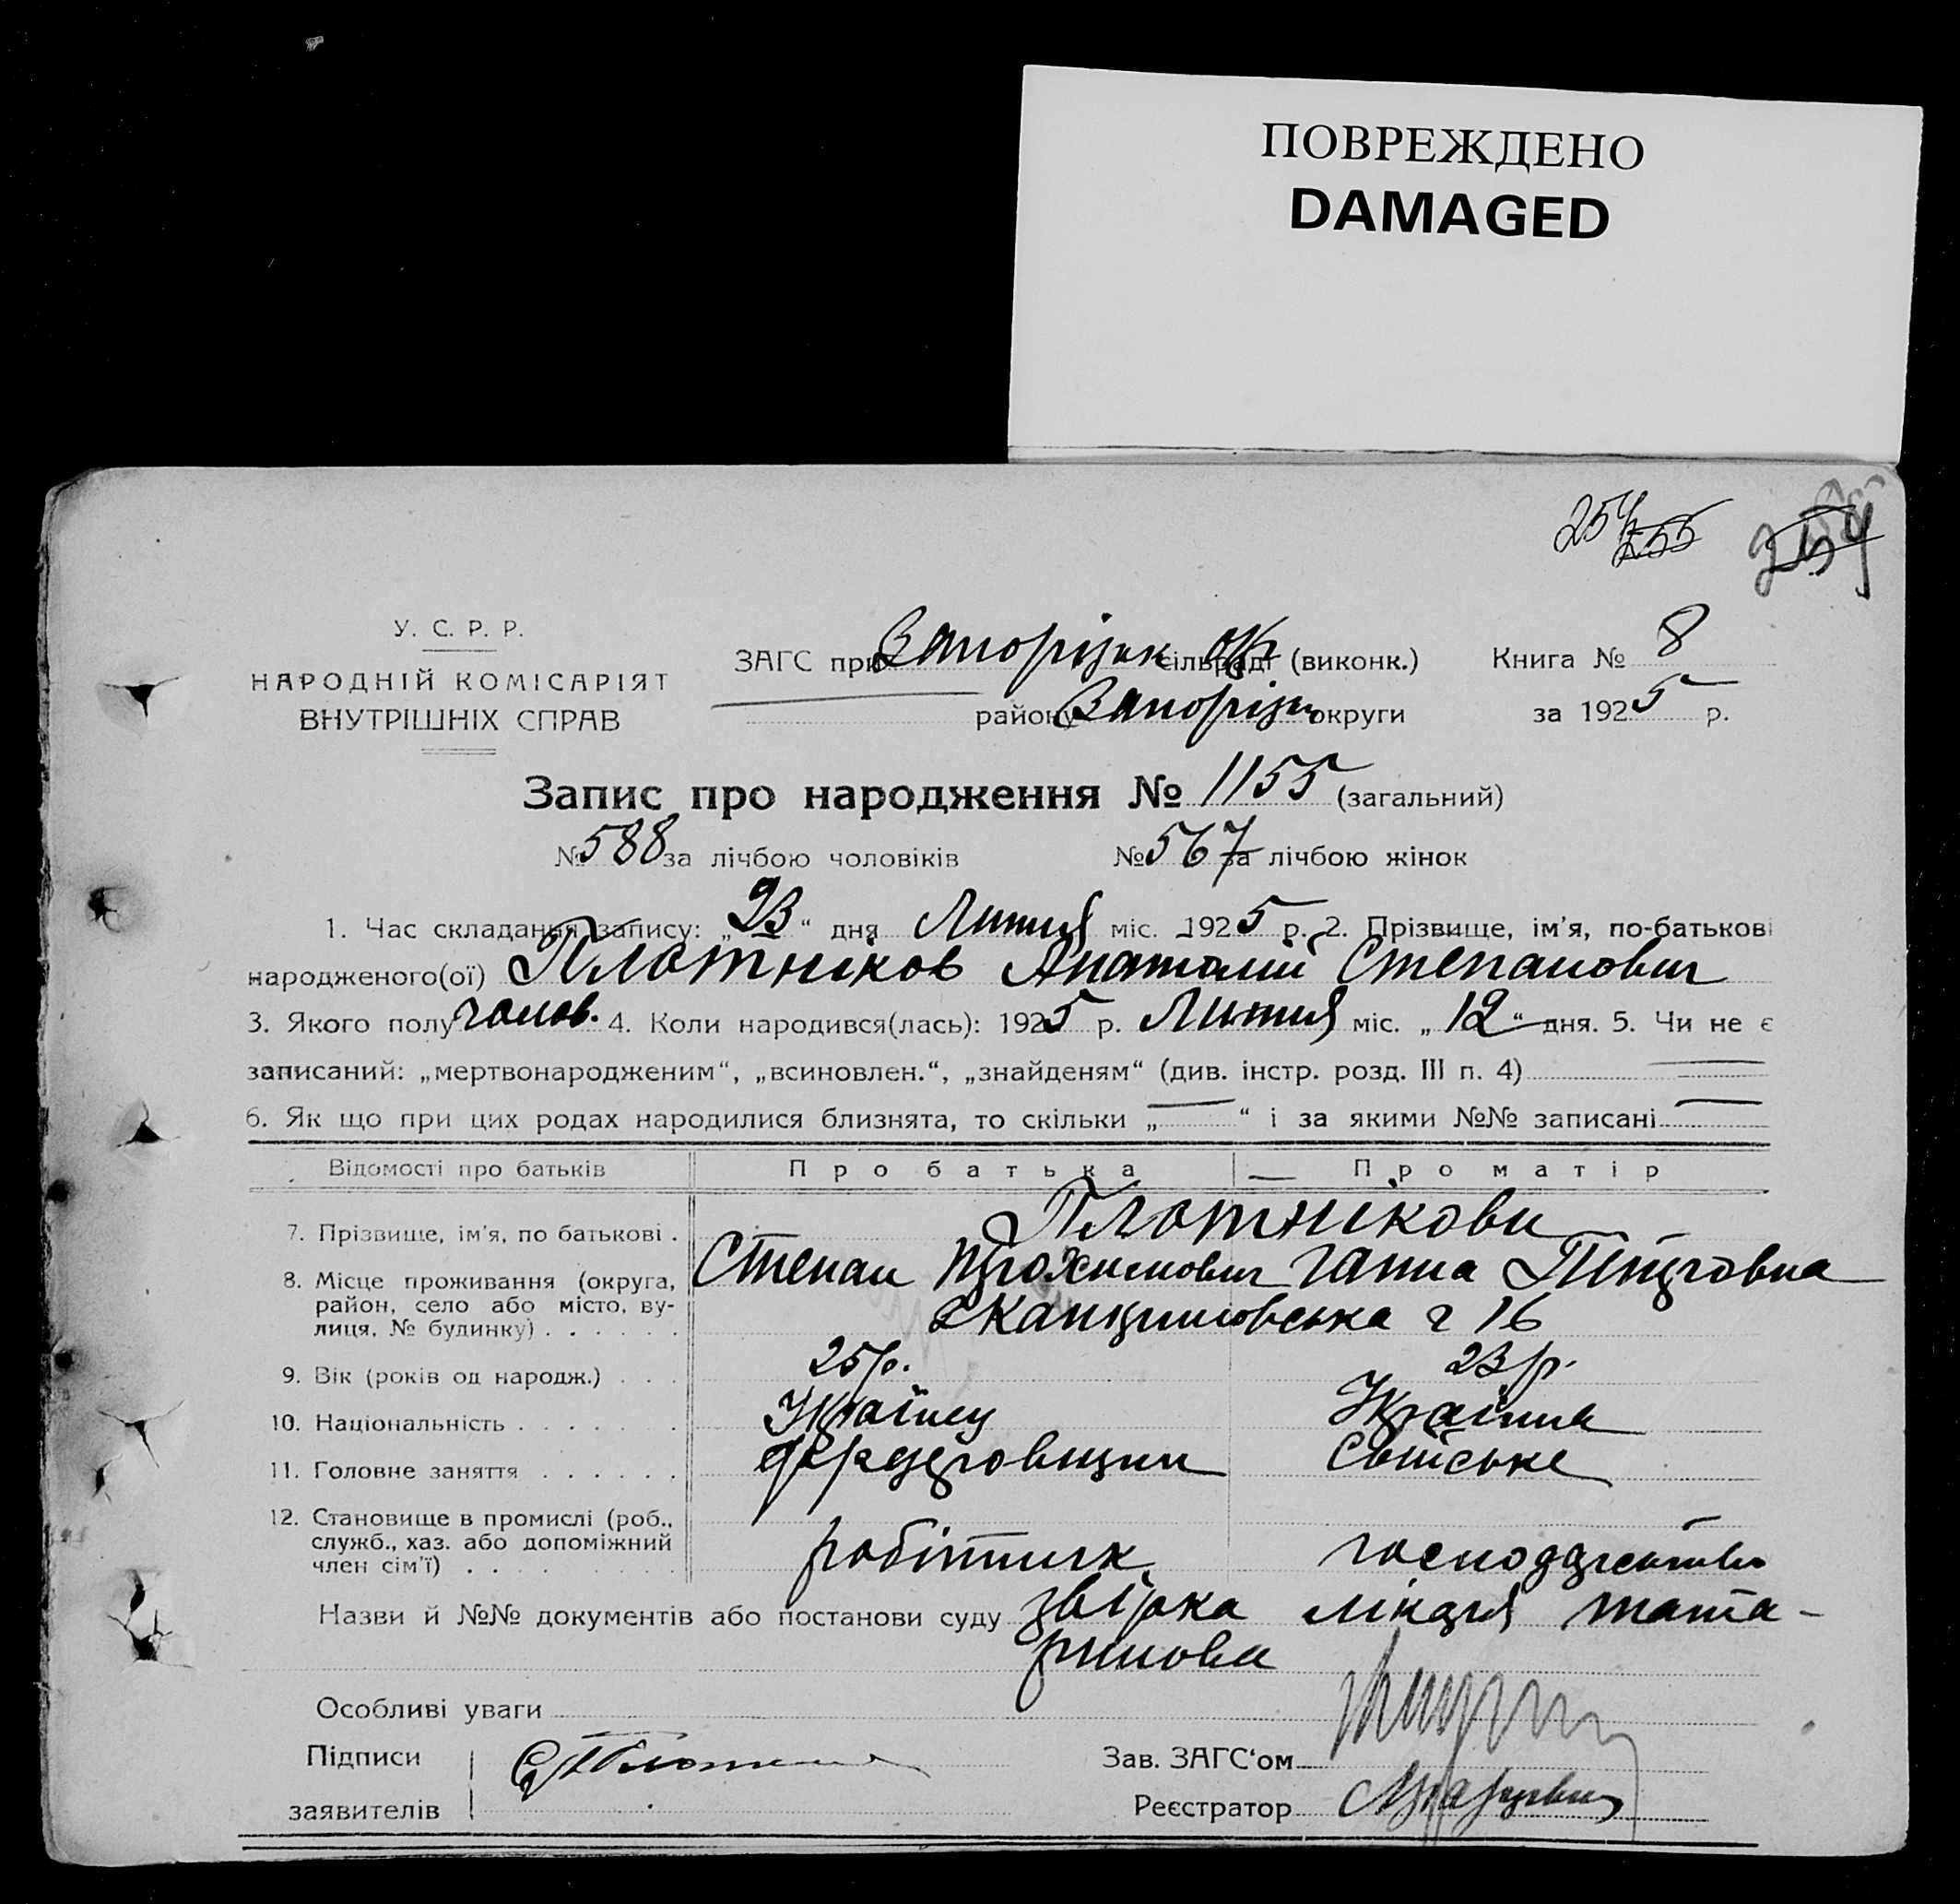 ПОВРЕЖДЕНО
DAMAGED
254 255
У. С. Р. Р.
НАРОДНІЙ КОМІСАРІЯТ
ВНУТРІШНІХ СПРАВ
ЗАГС при Запорізьк сільраді окр (виконк.)
району Запорізьк округи
Книга № 8
за 1925 р.
Запис про народження № 1155 (загальний)
№ 588 за лічбою чоловіків № 567 за лічбою жінок
1. Час складання запису: „23“ дня Лютня міс. 1925 р. 2. Прізвище, ім'я, по-батькові
народженого(ої) Плотніков Анатолій Степанович
3. Якого полу чолов. 4. Коли народився(лась): 1925 р. Лютня міс. „12“ дня. 5. Чи не є
записаний: „мертвонародженим“, „всиновлен.“, „знайденям“ (див. інстр. розд. III п. 4)
6. Як що при цих родах народилися близнята, то скільки „ “ і за якими №№ записані
Відомості про батьків Про батька Про матір
7. Прізвище, ім'я, по батькові . Плотнікови
Степан Ганна Петровна
8. Місце проживання (округа,
район, село або місто, ву-
лиця, № будинку) . . . . . . 16
9. Вік (років од народж.) . . . 25р. 23р.
10. Національність . . . . . . . Українец Українка
11. Головне заняття . . . . . . Свійське
12. Становище в промислі (роб.,
служб., хаз. або допоміжний
член сім'ї) . . робітник господарство
Назви й №№ документів або постанови суду звірка лікаря Тата-
ринова
Особливі уваги
Підписи
заявителів
Зав. ЗАГС'ом
Реєстратор